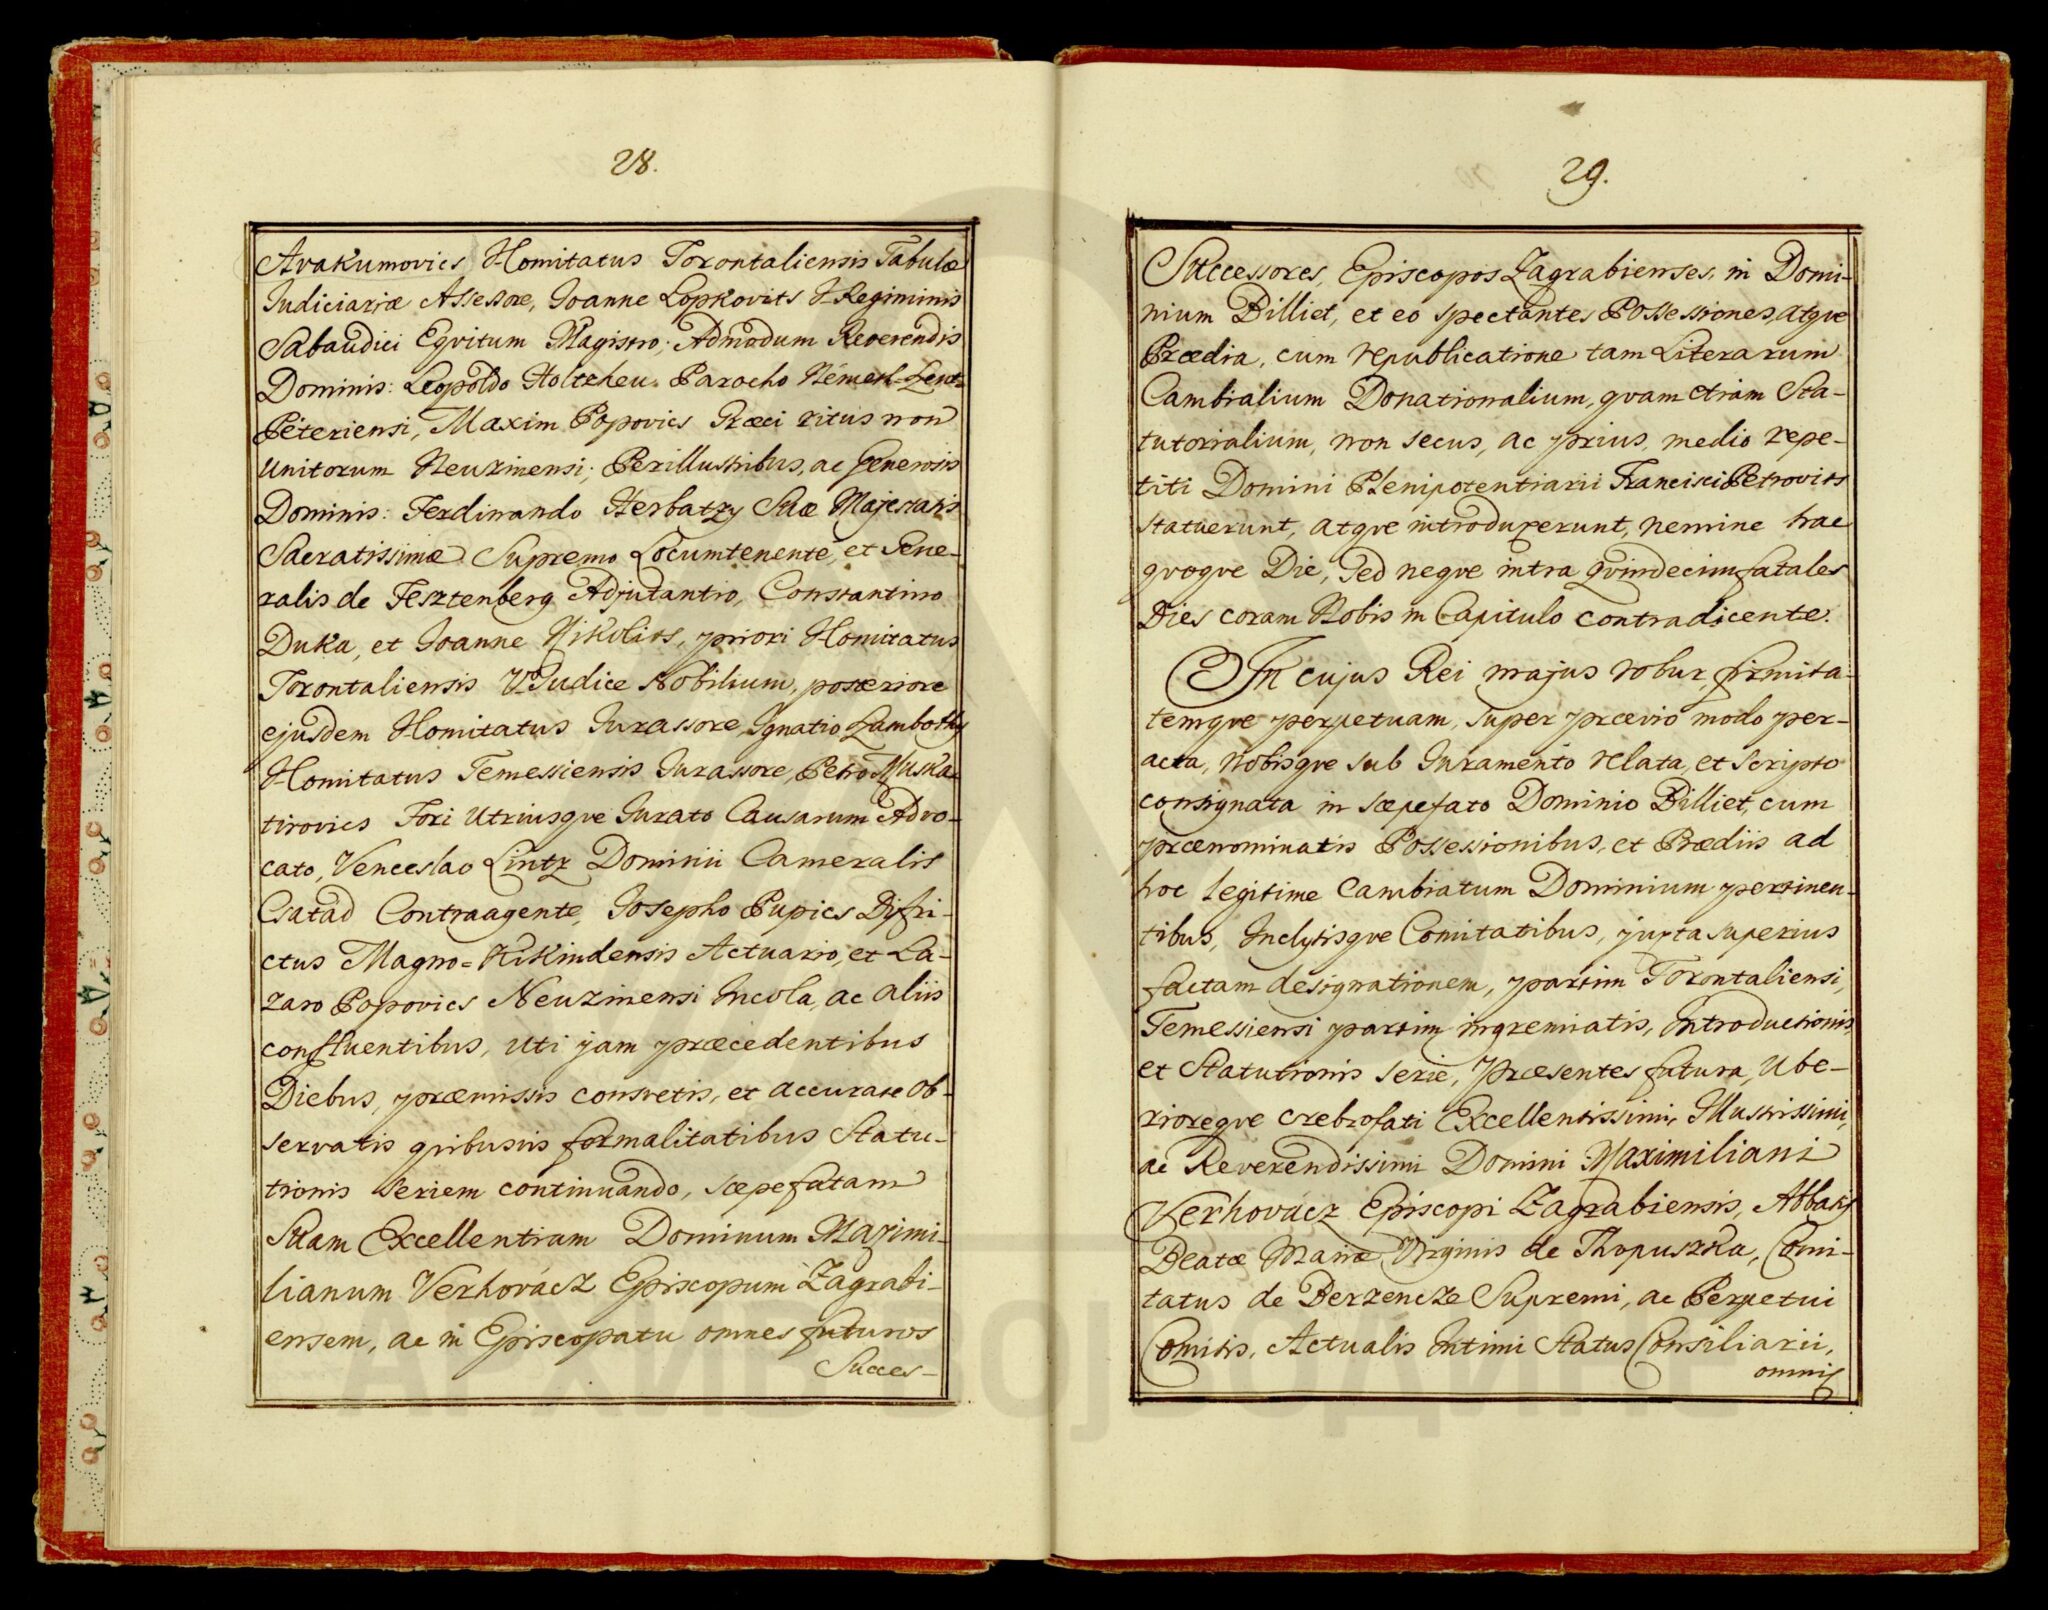 28.
Arakumovics, I. Comitatus Torontaliensis Tabulæ
Judiciariæ Assessore, Joanne Lopkovits I. Regiminis
Sabaudici Eqvitum Magistro; Admodum Reverendis
Dominis: Leopoldo Parocho Német-Szent-
Péteriensi, Maxim Popovics Græci ritus non
Unitorum Neuzinensi; Perillustribus, ac Generosis
Dominis: Ferdinando Herbatzy Suæ Majestatis
Sacratissimæ Supremo Locumtenente, et Gene-
ralis de Fesztenberg Adjutantio, Constantino
Duka, et Joanne Nikolits, priori I. Comitatus
Torontaliensis V. Judice Nobilium, posteriore
ejusdem I. Comitatus Jurassore, Ignatio Zambothy
I. Comitatus Temessiensis Jurassore, Petro Muska-
tirovics Fori Utriusqve Jurato Causarum Advo-
cato, Venceslao Lintz Dominii Cameralis
Csatad Contraagente, Josepho Pupics Distri-
ctus Magno-Kikindensis Actuario, et La-
zaro Popovics Neuzinensi Incola, ac aliis
confluentibus, uti jam præcedentibus
Diebus, præmissis consvetis, et accurate ob-
servatis qvibusvis formalitatibus Statu-
tionis seriem continuando, sæpefatam
Suam Excellentiam Dominum Maximi-
lianum Verhovácz Episcopum Zagrabi-
ensem, ac in Episcopatu omnes futuros
Succes-
29.
Successores, Episcopos Zagrabienses, in Domi-
nium Billiet, et eo spectantes Possessiones, atqve
Prædia, cum republicatione tam Literarum
Cambialium Donationalium, qvam etiam Sta-
tutorialium, non secus, ac prius, medio repe-
titi Domini Plenipotentiarii Francisci Petrovits
statuerunt, atqve introduxerunt, nemine hac
qvoqve Die, sed neqve intra qvindecim fatales
Dies coram Nobis in Capitulo contradicente.
In cujus Rei majus robur, firmita-
temqve perpetuam, super prævio modo per-
acta, Nobisqve sub Juramento relata, et scripto
consignata in sæpefato Dominio Billiet, cum
prænominatis Possessionibus, et Prædiis ad
hoc legitime cambiatum Dominium pertinen-
tibus, Inclytisqve Comitatibus, juxta superius
factam designationem, partim Torontaliensi,
Temessiensi partim ingremiatis, Introductionis
et Statutionis serie, Præsentes futura, Ube-
rioreqve crebrofati Excellentissimi, Illustrissimi,
ac Reverendissimi Domini Maximiliani
Verhovácz Episcopi Zagrabiensis, Abbatis
Beatæ Mariæ Virginis de Thopuszka, Comi-
tatus de Berzencze Supremi, ac Perpetui
Comitis, Actualis Intimi Status Consiliarii,
omnis